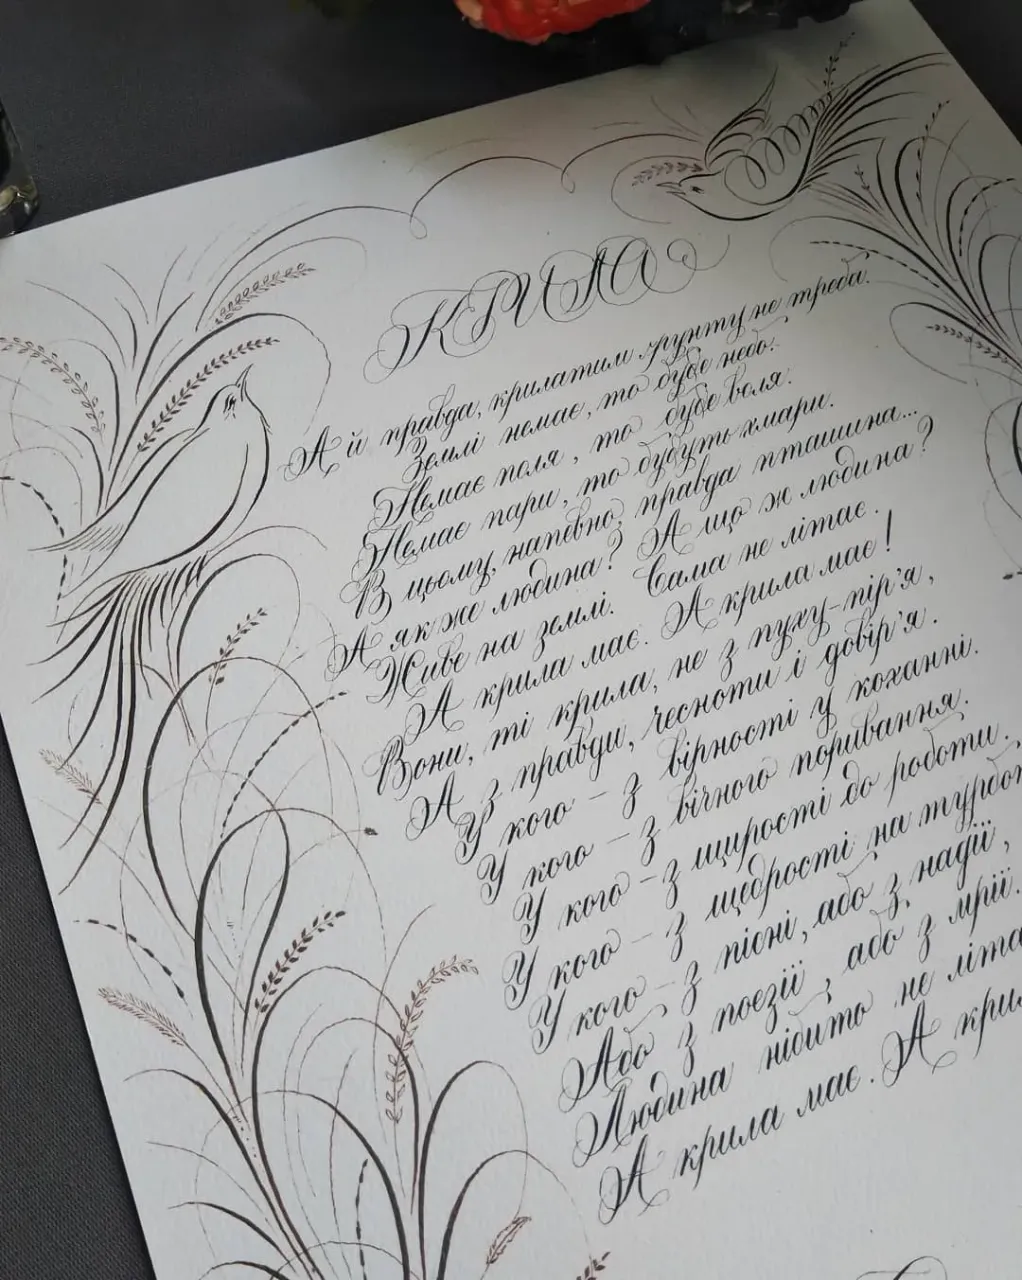 КРИЛА
А й правда, крилатим ґрунту не треба.
Землі немає, то буде небо.
Немає поля, то буде воля.
Немає пари, то будуть хмари.
В цьому, напевно, правда пташина...
А як же людина? А що ж людина?
Живе на землі. Сама не літає.
А крила має. А крила має!
Вони, ті крила, не з пуху-пір'я,
А з правди, чесноти і довір'я.
У кого – з вірності у коханні.
У кого – з вічного поривання.
У кого – з щирості до роботи.
У кого – з щедрості на
У кого – з пісні, або з надії,
Або з поезії, або з мрії.
Людина нібито не
А крила має. А